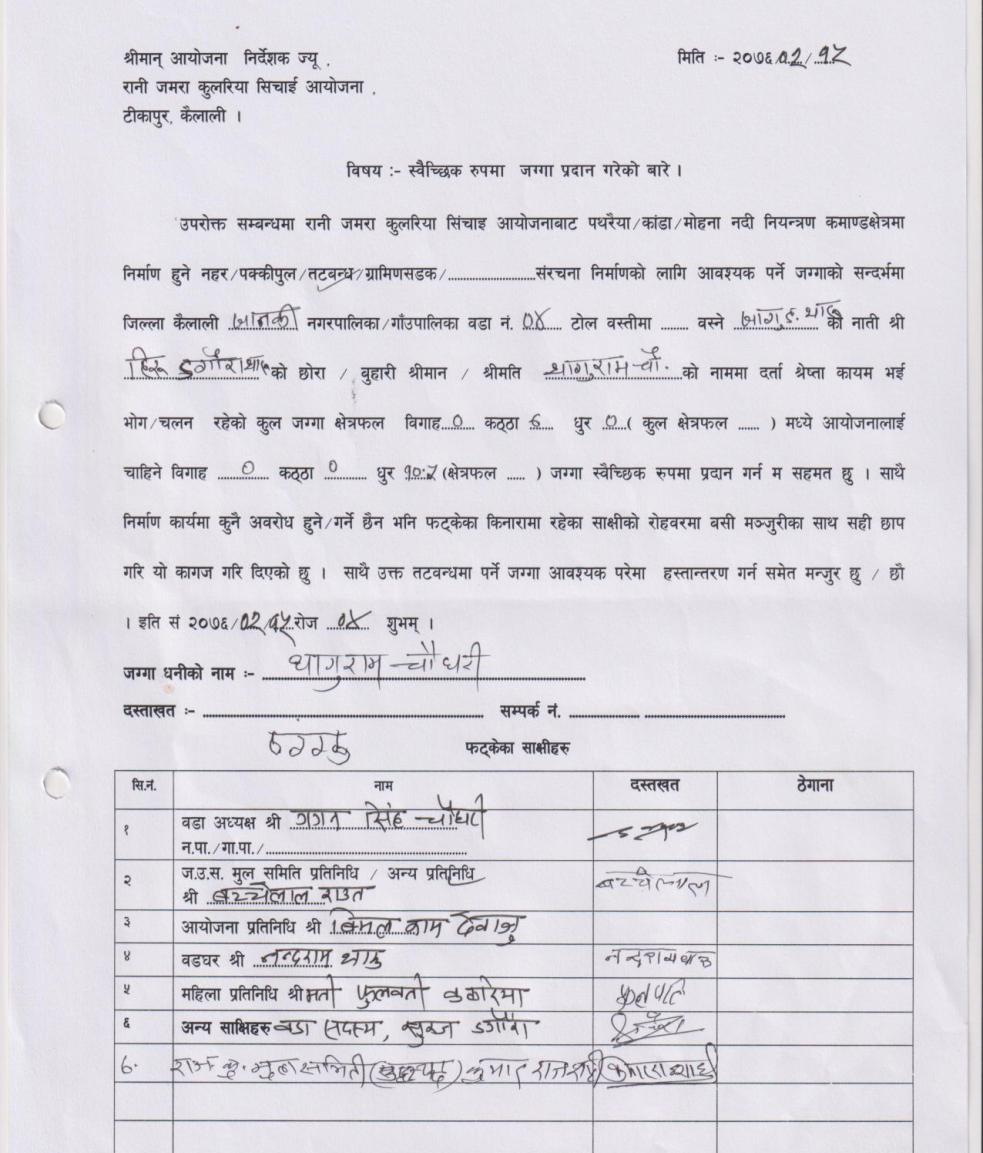 श्रीमान् आयोजना निर्देशक ज्यू , मिति :- २०७६/०२/१५
रानी जमरा कुलरिया सिचाई आयोजना ,
टीकापुर, कैलाली ।
विषय :- स्वैच्छिक रुपमा जग्गा प्रदान गरेको बारे ।
उपरोक्त सम्बन्धमा रानी जमरा कुलरिया सिंचाइ आयोजनाबाट पथरैया/कांडा/मोहना नदी नियन्त्रण कमाण्डक्षेत्रमा
निर्माण हुने नहर/पक्कीपुल/तटबन्ध/ग्रामिणसडक/....................संरचना निर्माणको लागि आवश्यक पर्ने जग्गाको सन्दर्भमा
जिल्ला कैलाली जानकी नगरपालिका/गाँउपालिका वडा नं. ०४ टोल वस्तीमा ........ वस्ने को नाती श्री
को छोरा / बुहारी श्रीमान / श्रीमति थागुराम चौ. को नाममा दर्ता श्रेष्ता कायम भई
भोग/चलन रहेको कुल जग्गा क्षेत्रफल विगाह ० कठ्ठा ६ धुर ० ( कुल क्षेत्रफल ...... ) मध्ये आयोजनालाई
चाहिने विगाह ० कठ्ठा ० धुर (क्षेत्रफल ..... ) जग्गा स्वैच्छिक रुपमा प्रदान गर्न म सहमत छु । साथै
निर्माण कार्यमा कुनै अवरोध हुने/गर्ने छैन भनि फट्केका किनारामा रहेका साक्षीको रोहवरमा बसी मञ्जुरीका साथ सही छाप
गरि यो कागज गरि दिएको छु । साथै उक्त तटवन्धमा पर्ने जग्गा आवश्यक परेमा हस्तान्तरण गर्न समेत मन्जुर छु / छौ
। इति सं २०७६/०२/१५ रोज ०४ शुभम् ।
जग्गा धनीको नाम :- थागुराम चौधरी
दस्ताखत :- ........................ सम्पर्क नं. ........................
फट्केका साक्षीहरु
सि.नं. नाम दस्तखत ठेगाना
१ वडा अध्यक्ष श्री गगन सिंह चौधरी
न.पा./गा.पा./........................
२ ज.उ.स. मुल समिति प्रतिनिधि / अन्य प्रतिनिधि
श्री बच्चेलाल राउत बच्चेलाल
३ आयोजना प्रतिनिधि श्री
४ वडघर श्री नन्दराम थारु
५ महिला प्रतिनिधि श्रीमती फुलवती
६ अन्य साक्षिहरु वडा सदस्य,